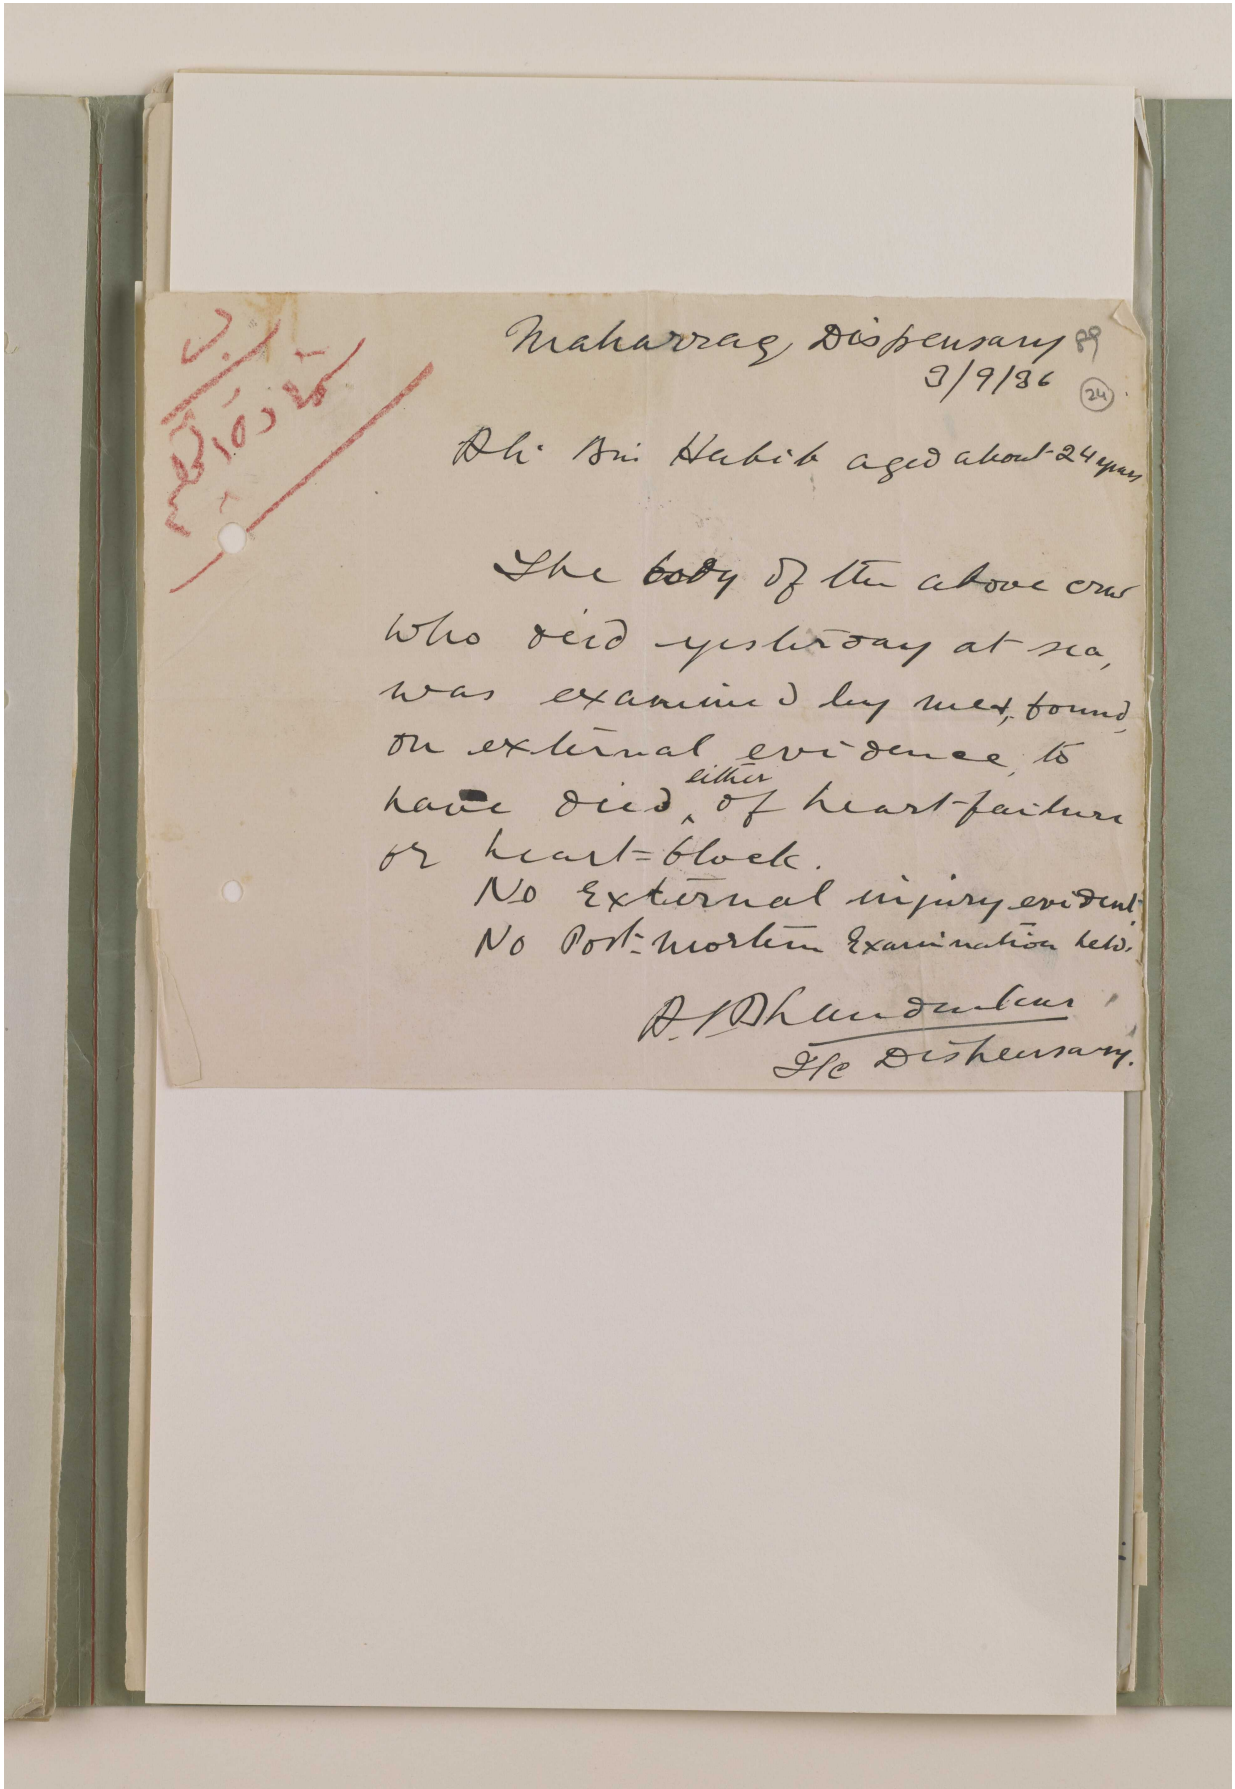 Maharraq Dispensary 89
3/9/36 24
Ali Bin Habib aged about 24 years
The body of the above one
who died yesterday at sea,
was examined by me &, found,
on external evidence, to
have died either of heart-failure
or heart=block.
No External injury evident.
No Post-mortem Examination held.
I/c Dispensary.